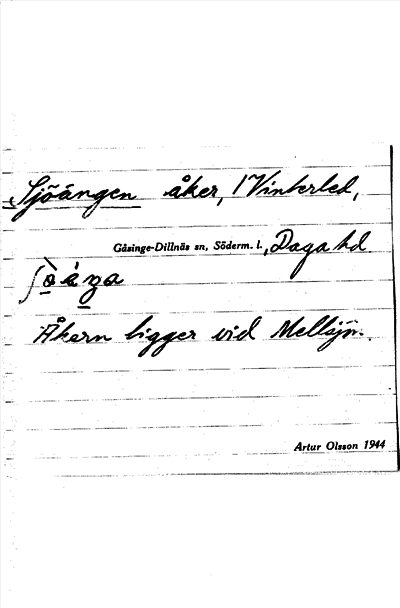 Sjöängen åker, Vinterled,
Gåsinge-Dillnäs sn, Söderm. l., Daga hd
Åkern ligger vid Mellsjön.
Artur Olsson 1944